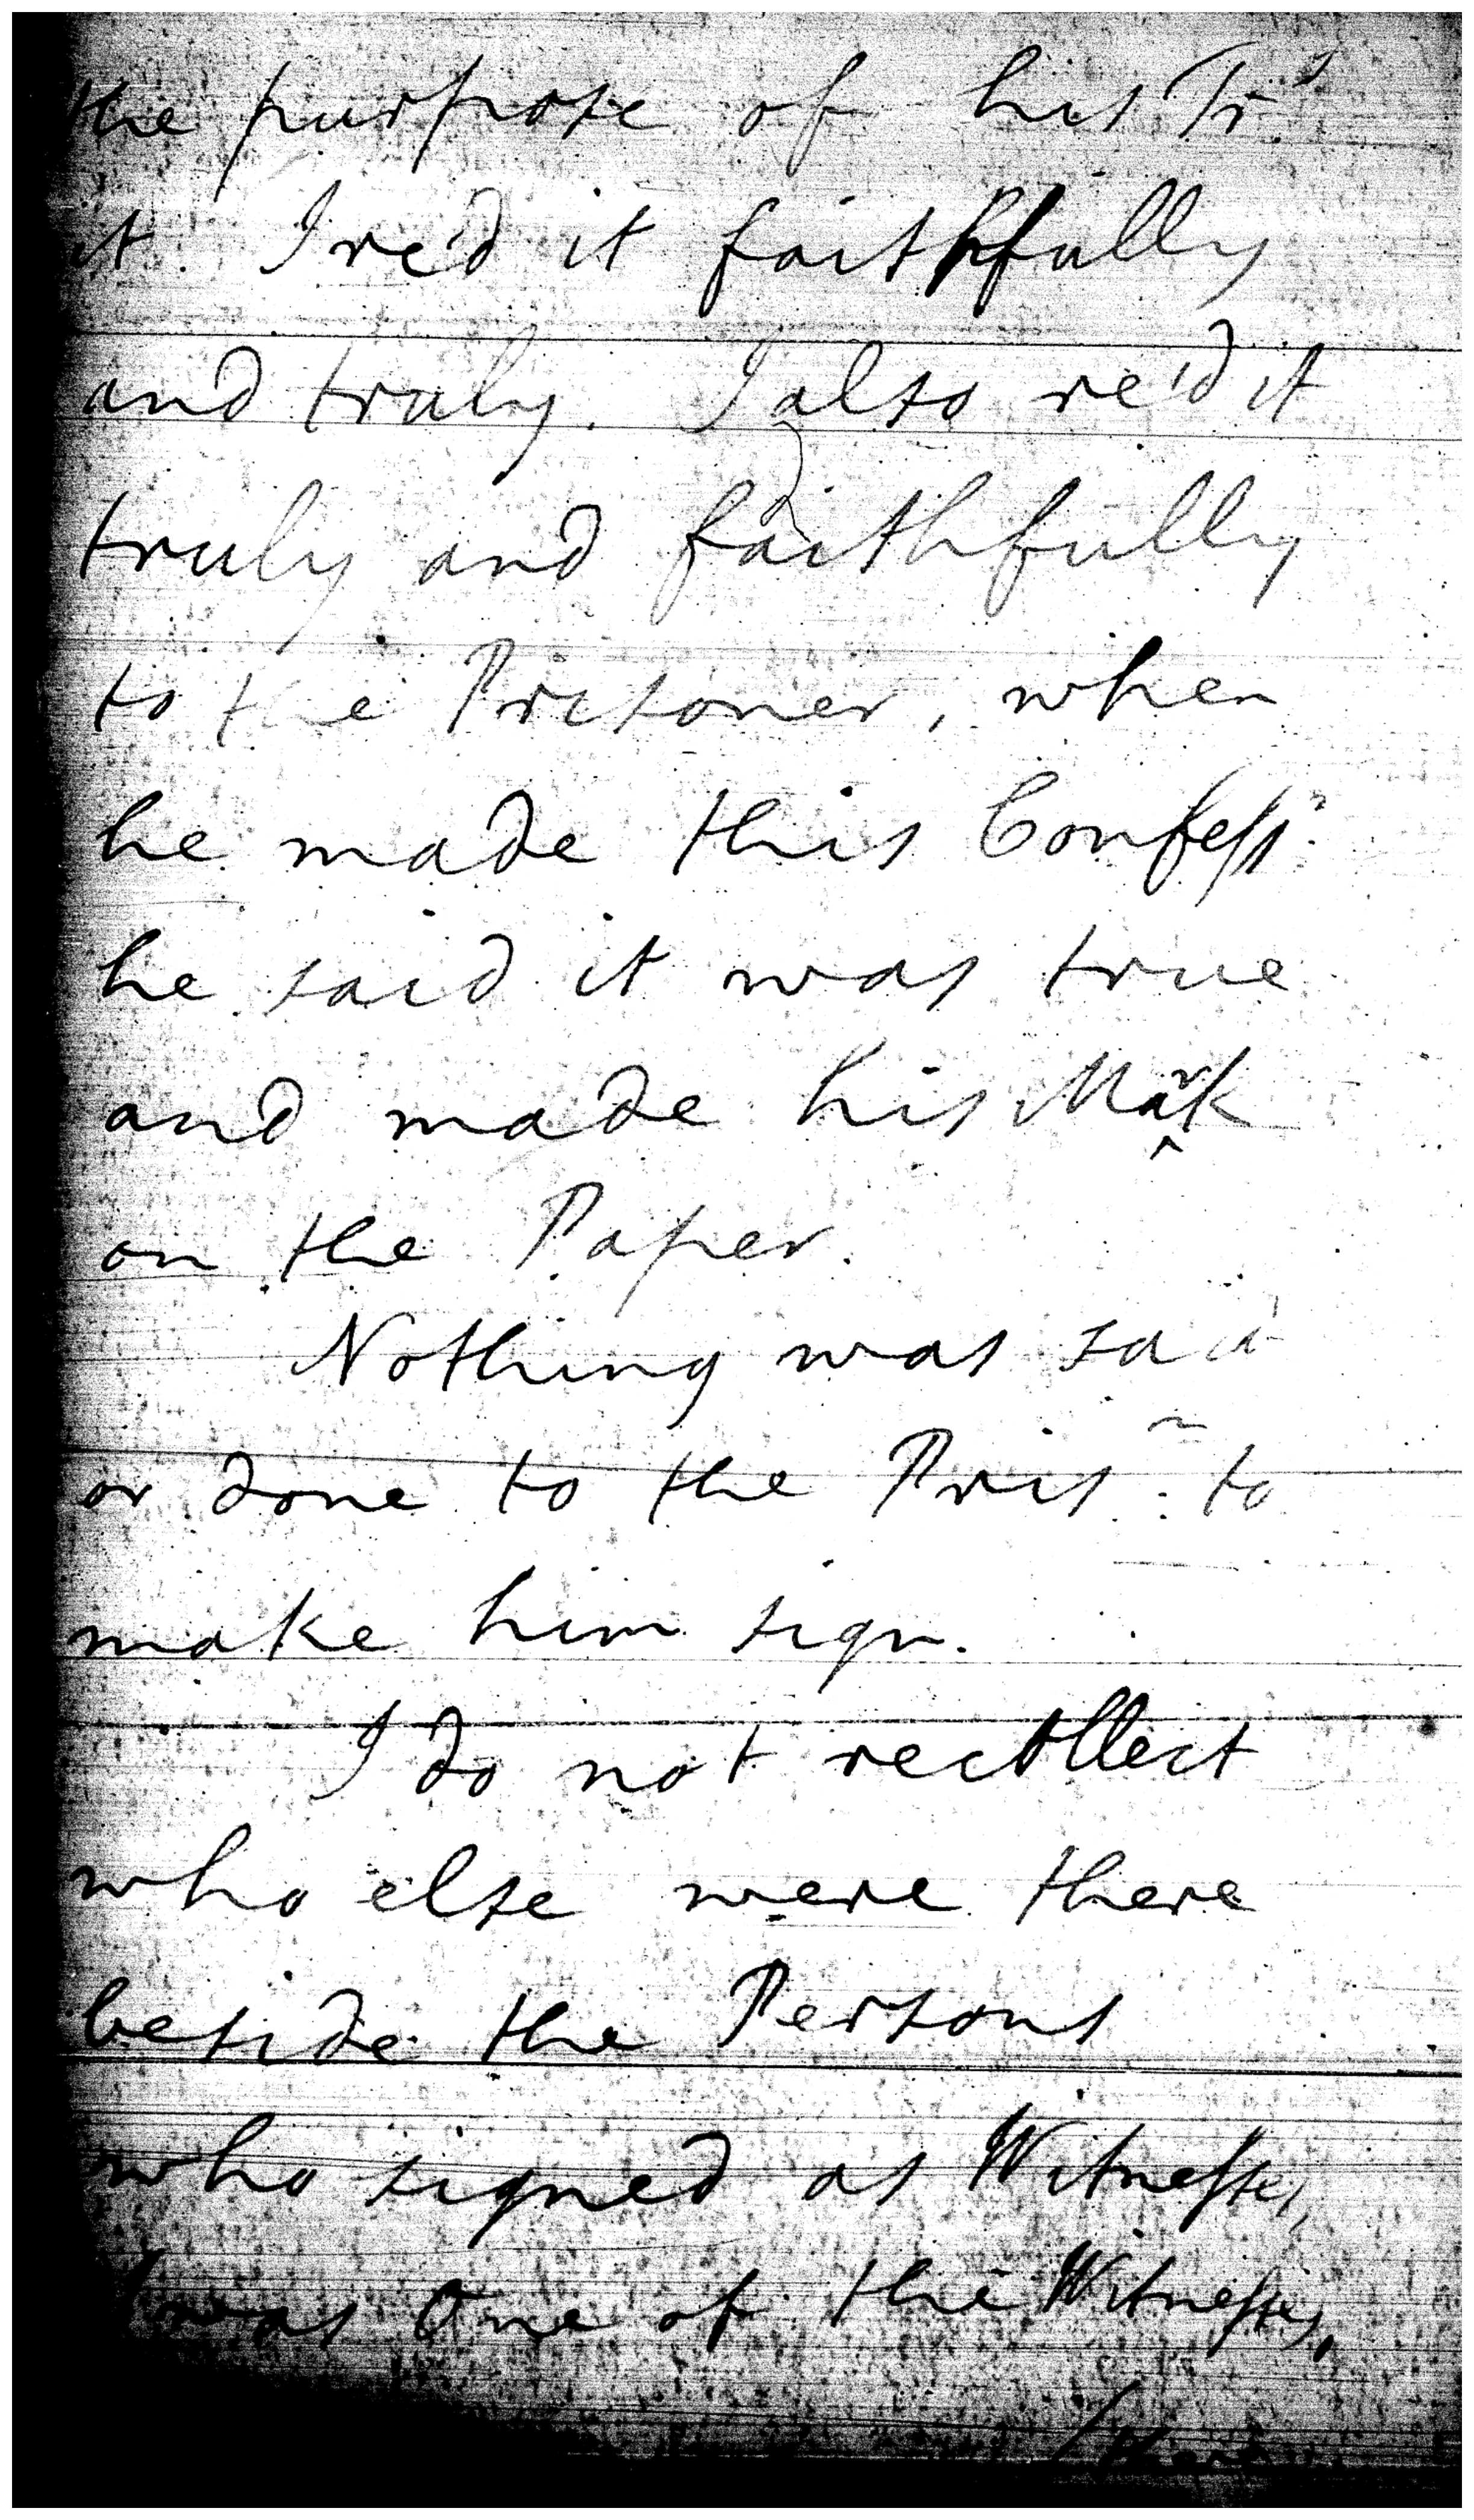 the purpose of his Tr.^g
it. I re'd it faithfully
and truly. I also re'd it
truly and faithfully
to the Prisoner, when
he made this Confess^n.
he said it was true
and made his Mark
on the Paper.
Nothing was said
or done to the Pris^r. to
make him sign.
I do not recollect
who else were there
beside the Persons
who signed as Witnesses,
I was One of the Witnesses,